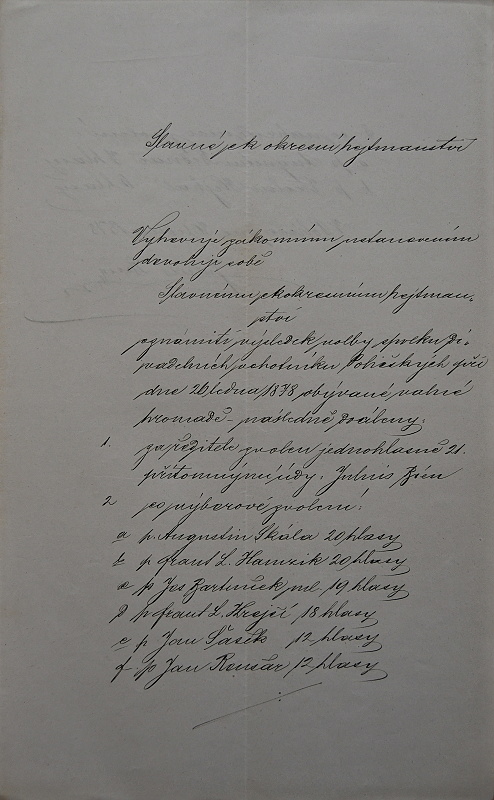 Slavné ck okresní hejtmanství
Vyhovuje zákonním ustanovením
dovoluje sobě
Slavnému ck okresnímu hejtman-
ství
oznámiti výsledek volby spolku di-
vadelních ochotníků Poličských při
dne 20 ledna 1878 obývané valné
hromadě - následně docíleny:
1. za ředitele zvolen jednohlasně 21.
přítomnými údy: Julius
2 za výborové zvoleni:
a p. Augustin Skála 20 hlasy
b p frant L. Hamzik 20 hlasy
c p Jos Bartuněk ml. 19 hlasy
d p frant L. Krejčí 18 hlasy
e p Jan Šašek 12 hlasy
f p Jan Rousar 12 hlasy